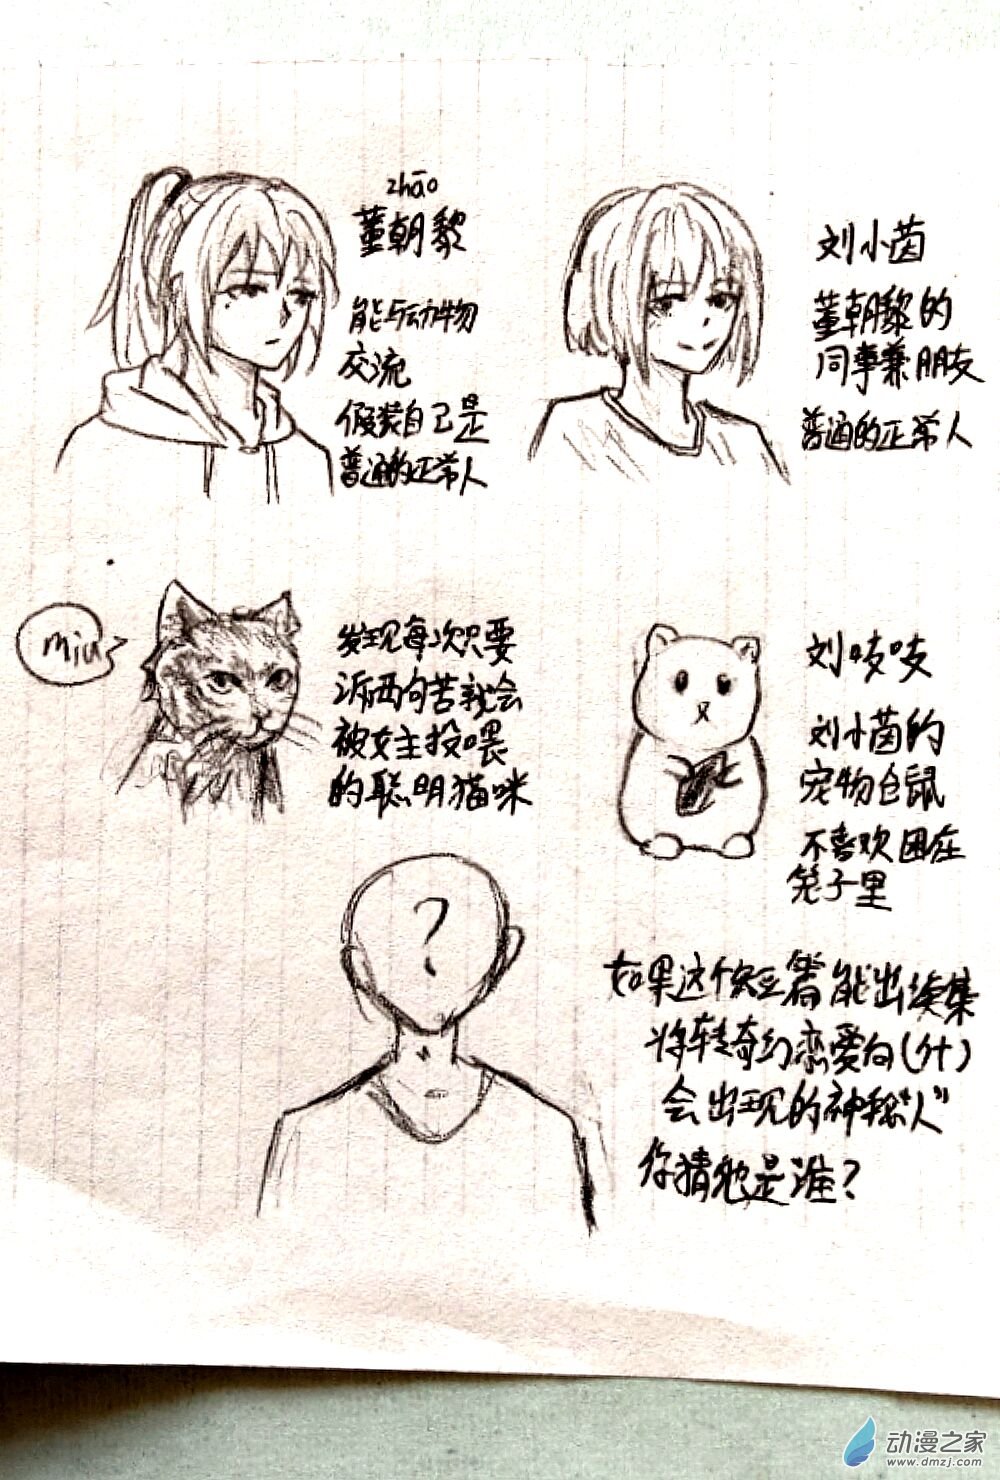 zhāo
董朝黎
能与动物
交流
假装自己是
普通的正常人
刘小茵
董朝黎的
同事兼朋友
普通的正常人
miu
发现每次只要
派西向苦就会
被女主投喂
的聪明猫咪
刘吱吱
刘小茵的
宠物仓鼠
不喜欢困在
笼子里
?
如果这个短篇能出续集
将转奇幻恋爱向(什)
会出现的神秘“人”
你猜他是谁?
动漫之家
www.dmzj.com